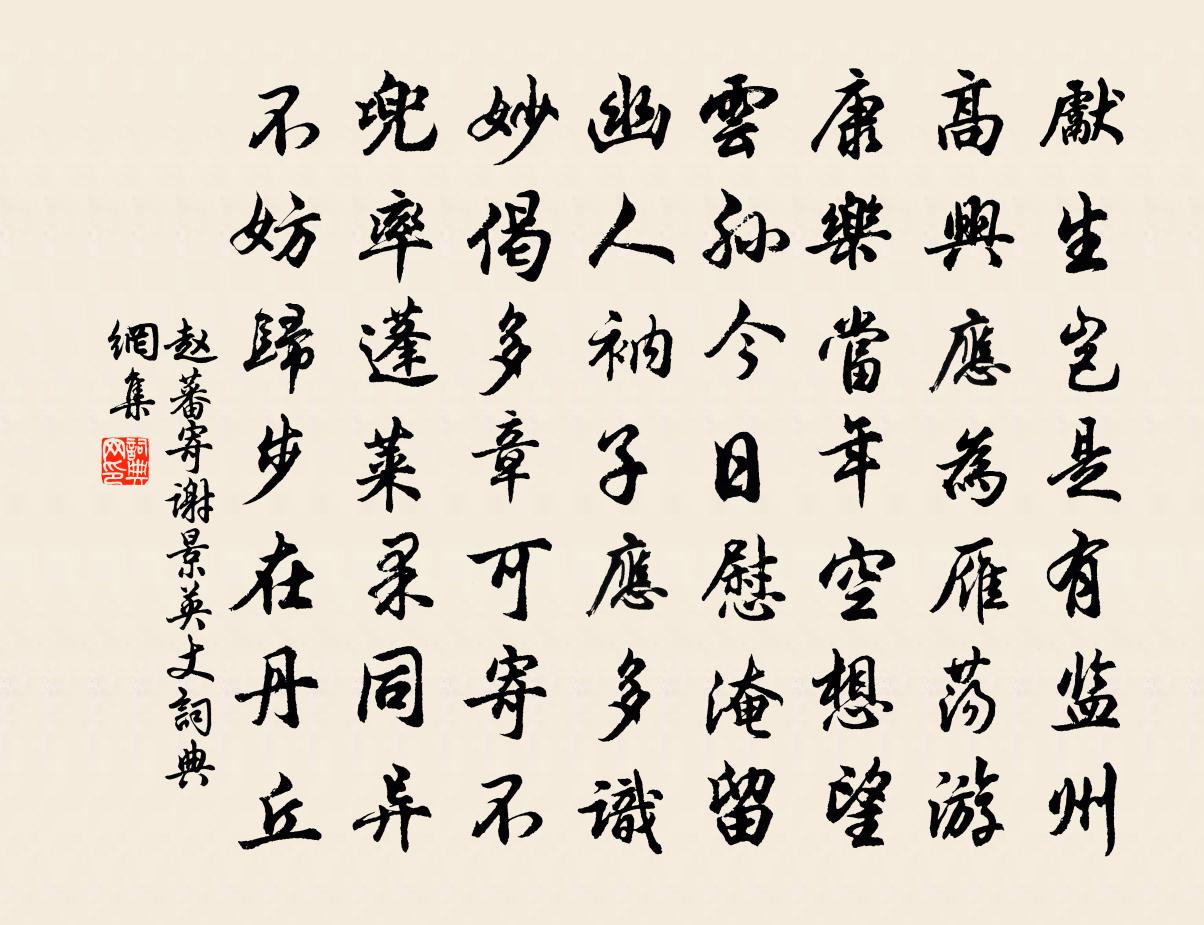 獻生岂是有监州
高興應為雁荡游
康樂當年空想望
雲孙今日慰淹留
幽人衲子應多識
妙偈多章可寄不
兜率蓬萊果同异
不妨歸步在丹丘
赵蕃寄谢景英丈詞典
網集
詞典
网印